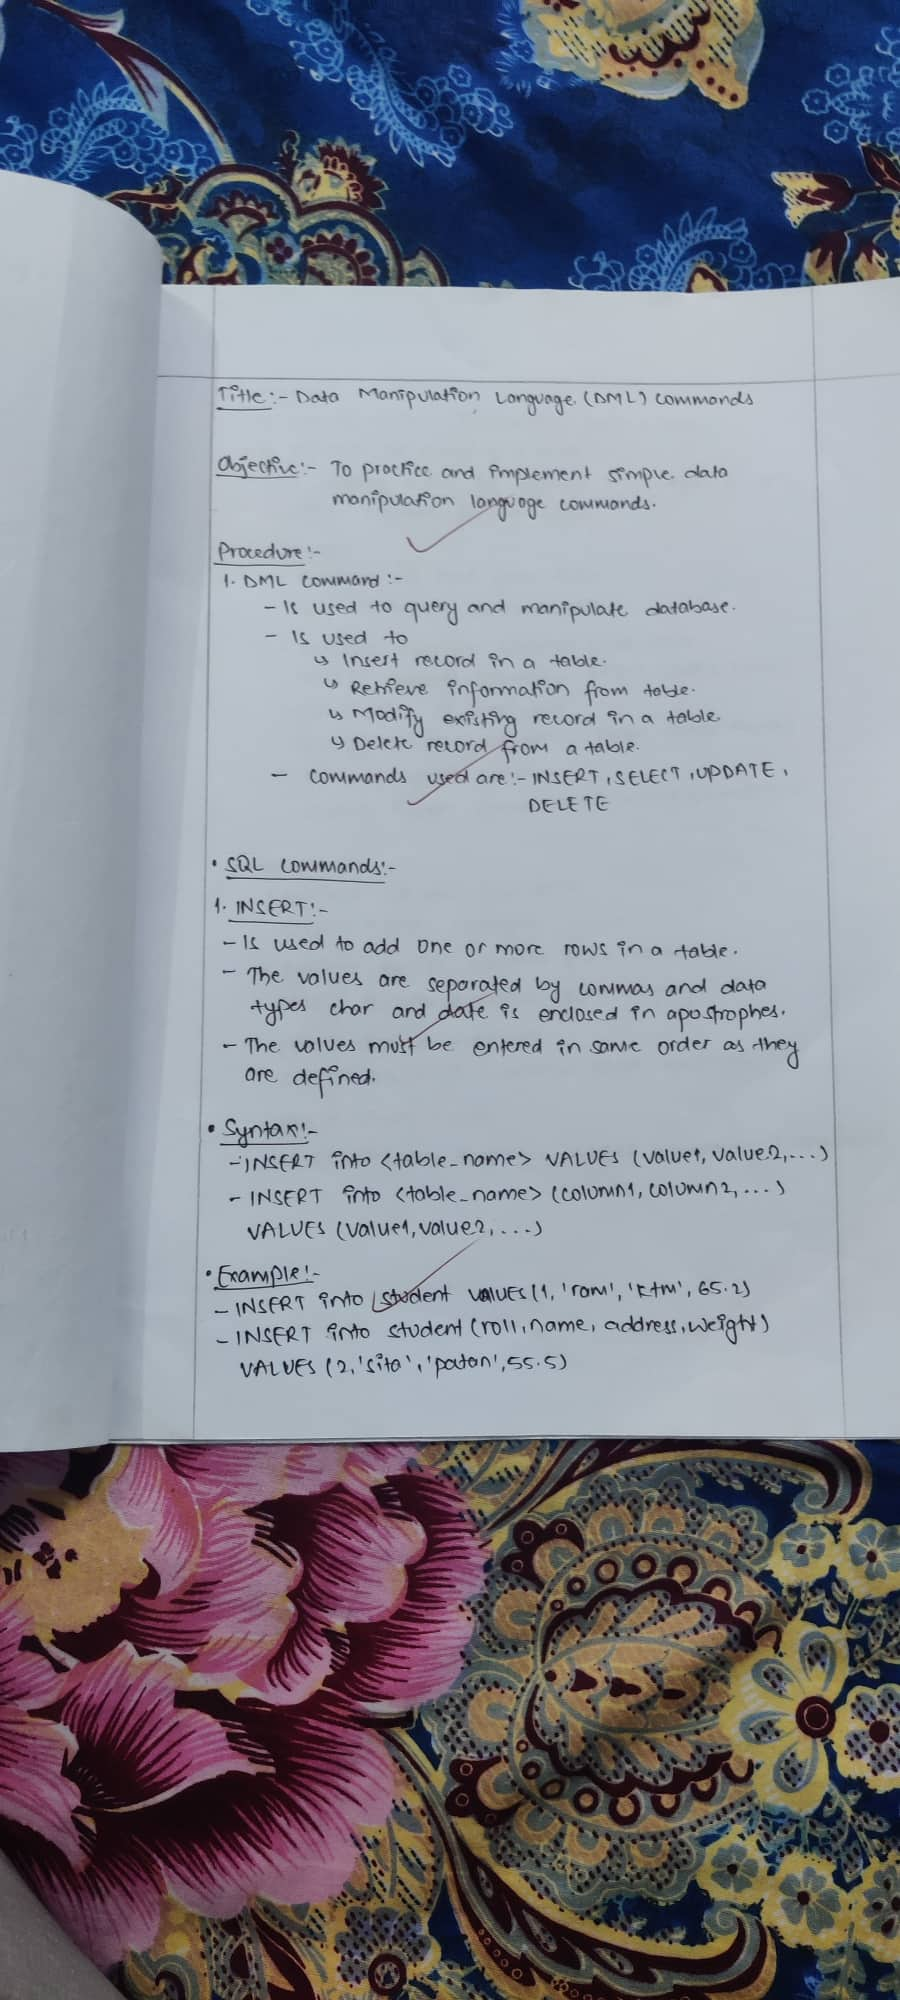 Title:- Data Manipulation Language (DML) commands
Objective:- To practice and implement simple data
manipulation language commands.
Procedure:-
1. DML command:-
- Is used to query and manipulate database.
- Is used to
↳ Insert record in a table.
↳ Retrieve information from table.
↳ Modify existing record in a table
↳ Delete record from a table.
- commands used are:- INSERT, SELECT, UPDATE,
DELETE
• SQL commands:-
1. INSERT:-
- Is used to add one or more rows in a table.
- The values are separated by commas and data
types char and date is enclosed in apostrophes.
- The values must be entered in same order as they
are defined.
• Syntax:-
- INSERT into <table_name> VALUES (value1, value2,...)
- INSERT into <table_name> (column1, column2,...)
VALUES (value1, value2,...)
• Example:-
- INSERT into student values (1, 'ram', 'ktm', 65.2)
- INSERT into student (roll, name, address, weight)
VALUES (2, 'sita', 'patan', 55.5)